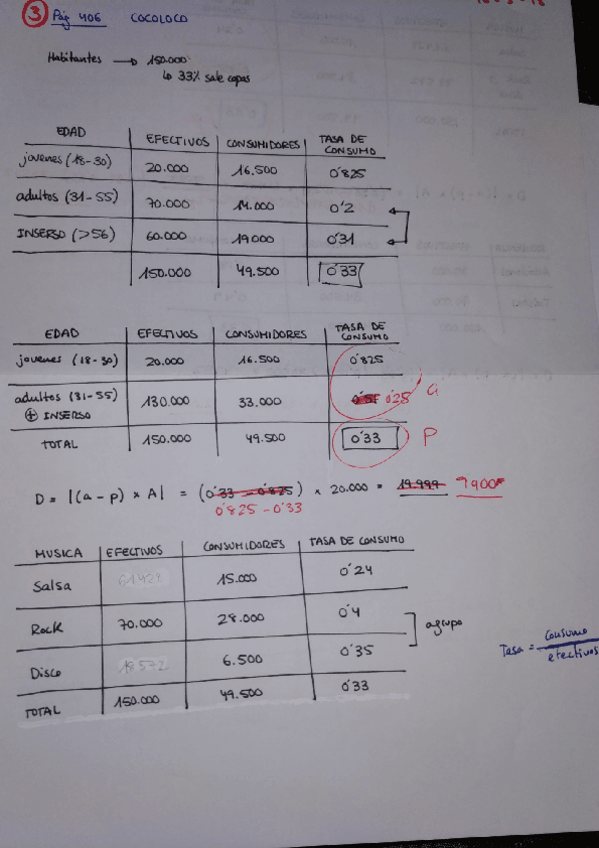 ③ Pág 406 COCOLOCO
Habitantes → 150.000
↳ 33% sale copas
EDAD EFECTIVOS CONSUMIDORES TASA DE CONSUMO
jovenes (18-30) 20.000 16.500 0'825
adultos (31-55) 70.000 14.000 0'2
INSERSO (>56) 60.000 19000 0'31
150.000 49.500 0'33
EDAD EFECTIVOS CONSUMIDORES TASA DE CONSUMO
jovenes (18-30) 20.000 16.500 0'825
adultos (31-55) ⊕ INSERSO 130.000 33.000 0'25 a
TOTAL 150.000 49.500 0'33 P
D = |(a - p) × A| = (0'33 - 0'825) × 20.000 = 19.999 9900
0'825 - 0'33
MUSICA EFECTIVOS CONSUMIDORES TASA DE CONSUMO
Salsa 61428 15.000 0'24
Rock 70.000 28.000 0'4
agrupo
Disco 18572 6.500 0'35
Tasa = consumo / efectivos
TOTAL 150.000 49.500 0'33